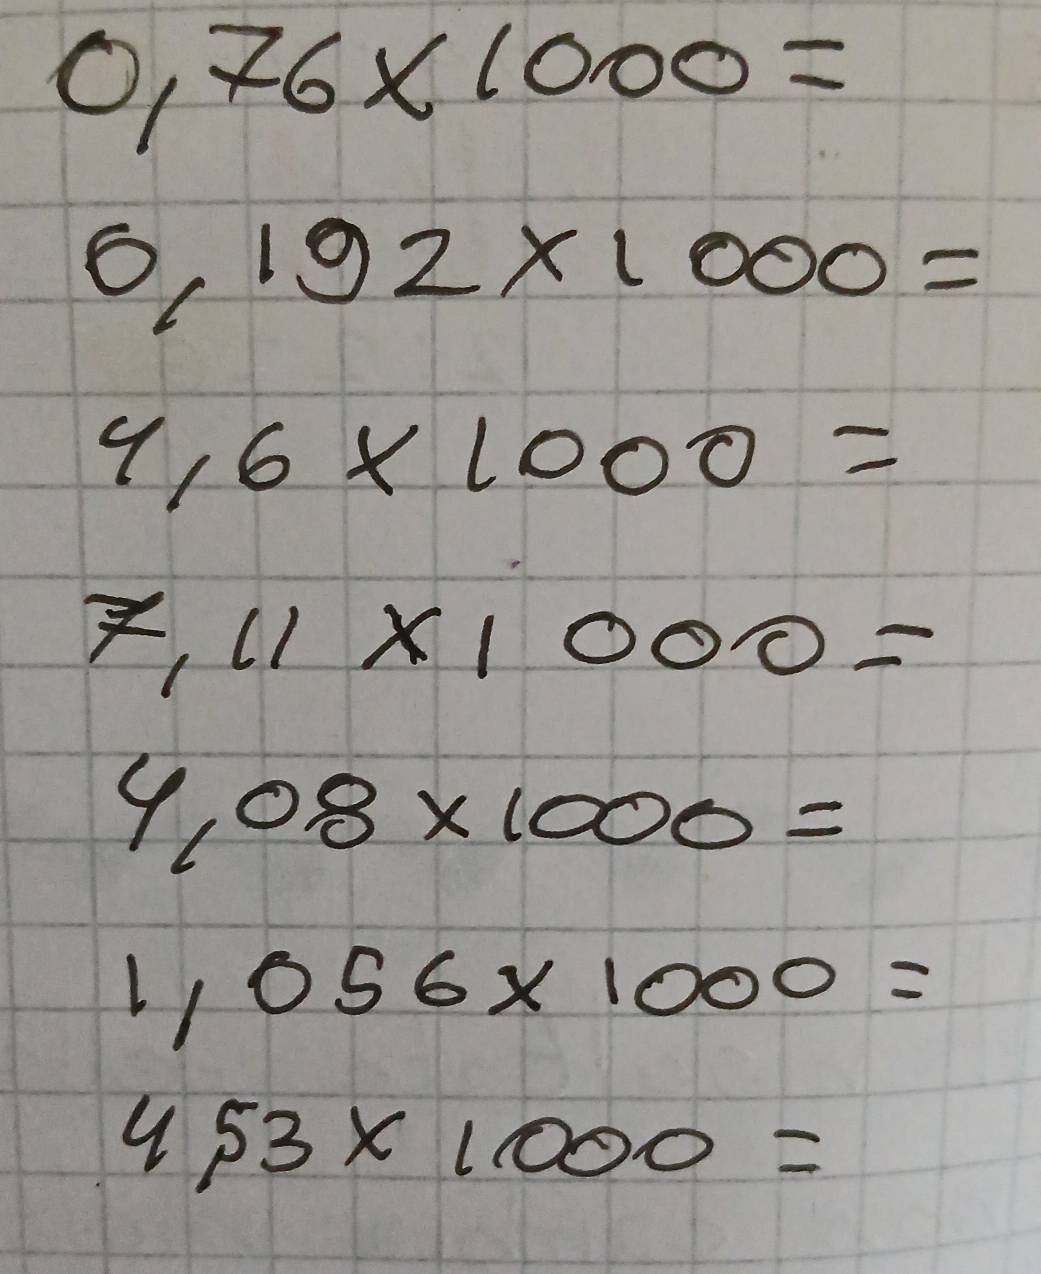 0,76x1000=
0,192x1000=
4,6x1000=
7,11x1000=
4,08x1000=
1,056x1000=
4,53x1000=